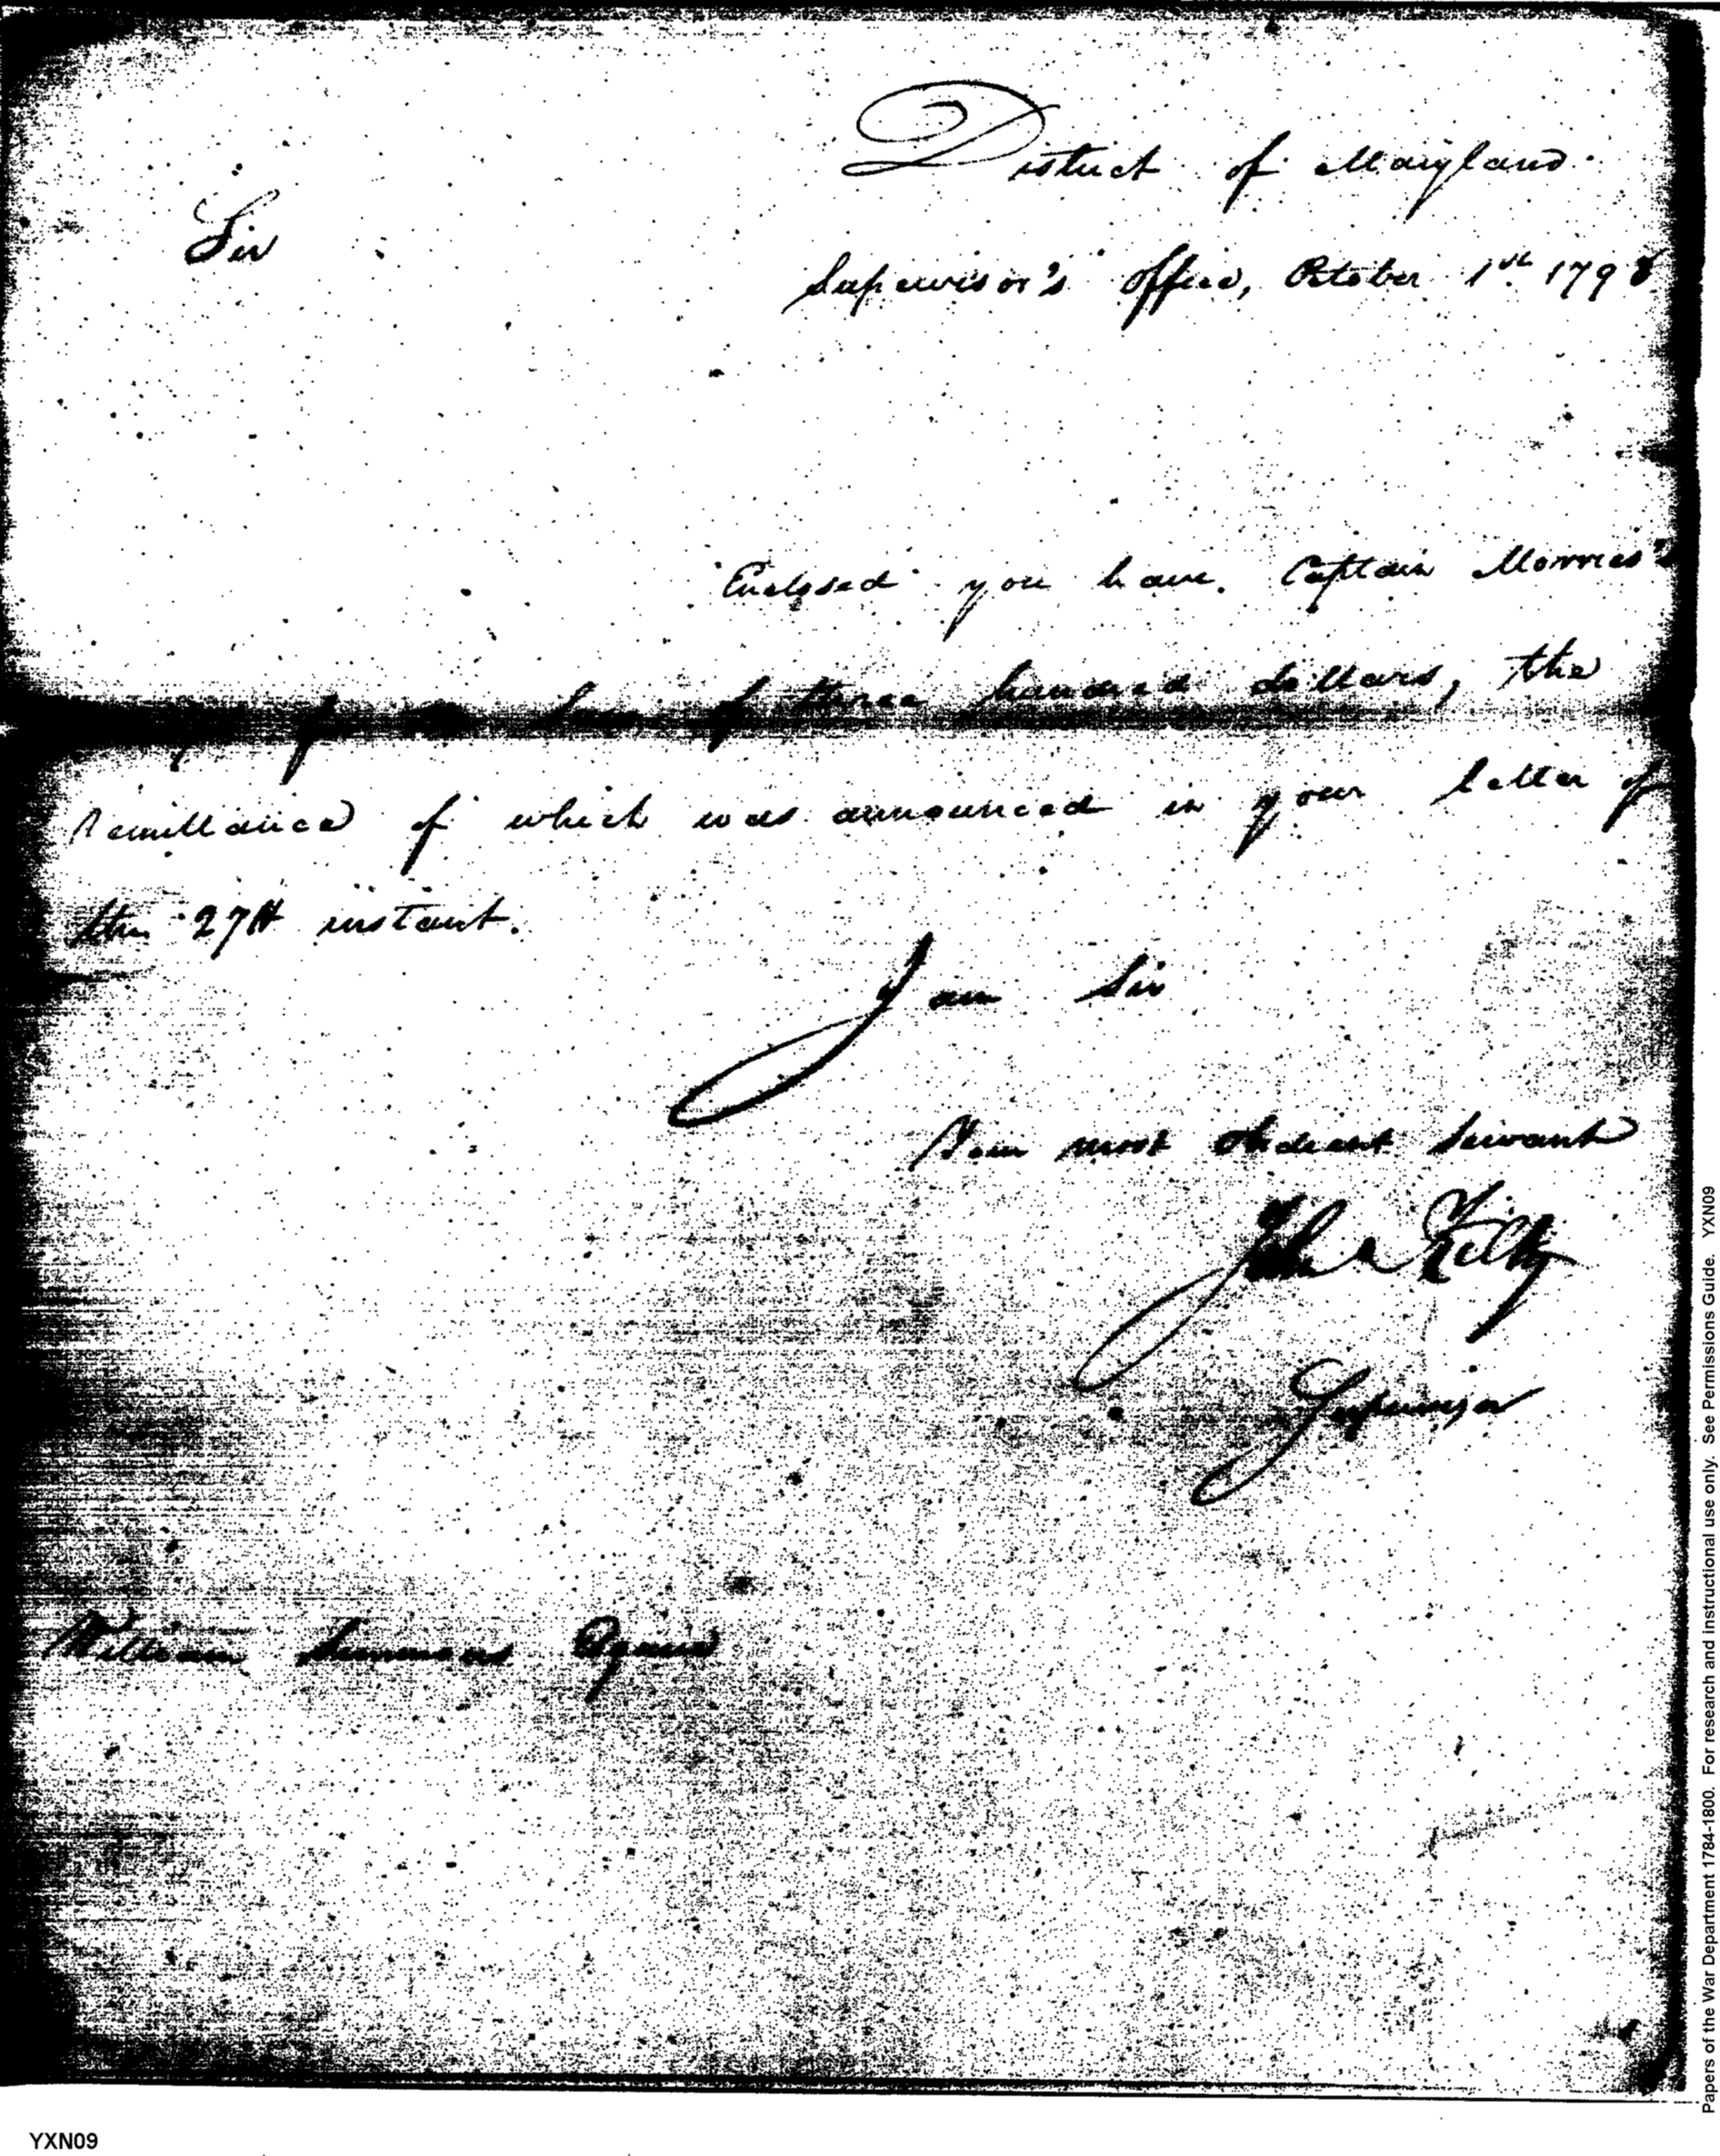 District of Maryland
Sir
Supervisor's Office, October 1st 1798
Enclosed you have Captain Morris's
of three hundred dollars, the
Remittance of which was announced in your letter of
the 27th instant.
I am Sir
Your most obedient Servant
John Kilty
Supervisor
William Simmons Esquire
YXN09
Papers of the War Department 1784-1800. For research and instructional use only. See Permissions Guide. YXN09